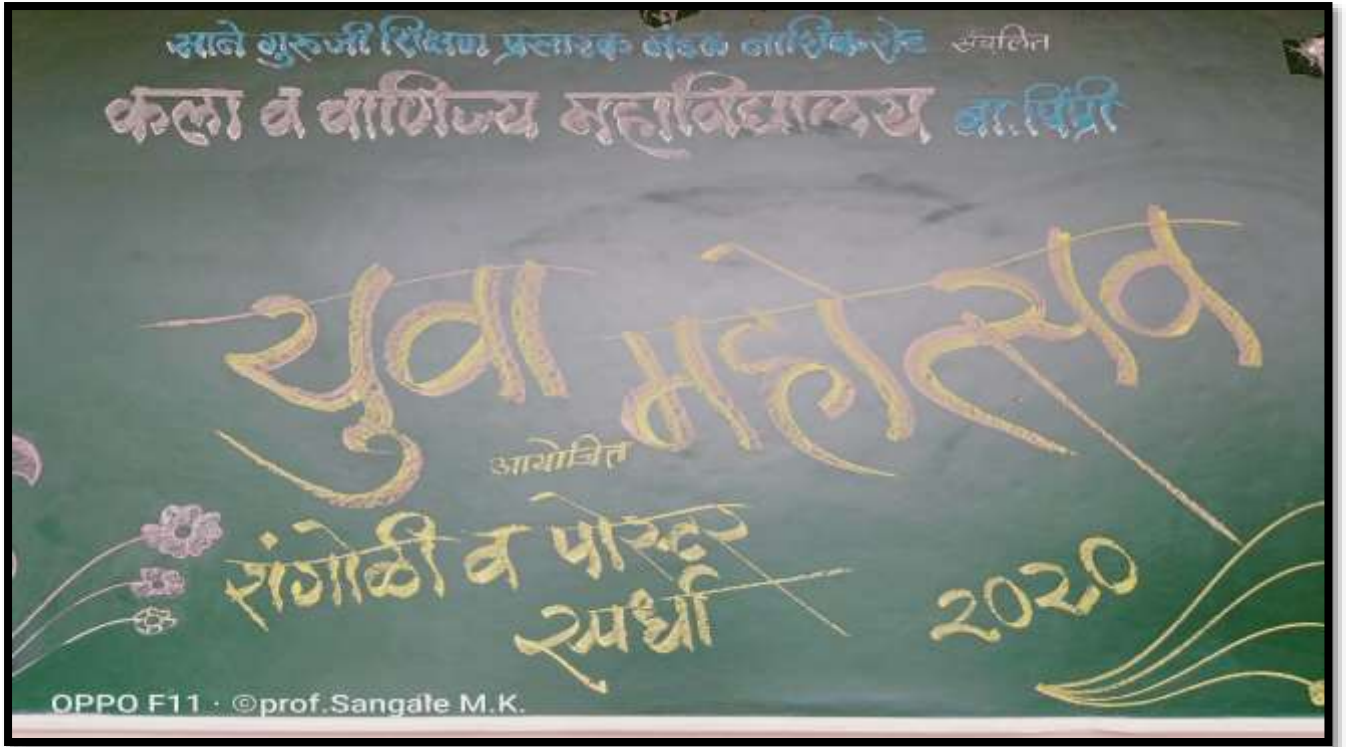 साने गुरुजी शिक्षण प्रसारक मंडळ नाशिकरोड संचलित
कला व वाणिज्य महाविद्यालय बा.पिंप्री
युवा महोत्सव
आयोजित
रांगोळी व पोस्टर
स्पर्धा २०२०
OPPO F11 · ©prof.Sangale M.K.